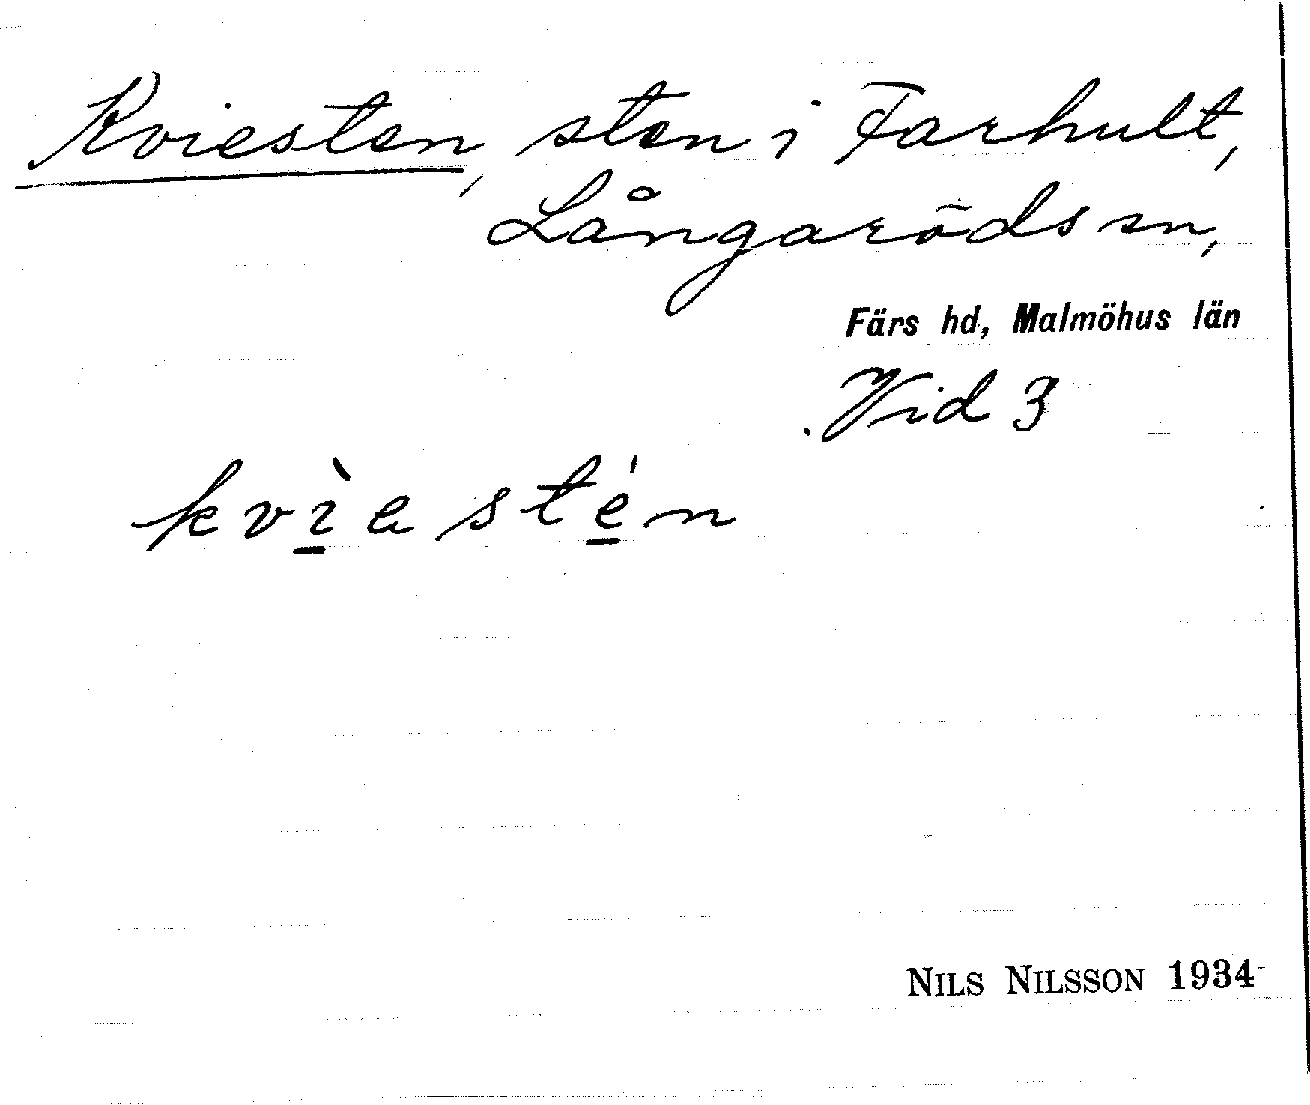 Kviesten, sten i Farhult,
Långaröds sn,
Färs hd, Malmöhus län
Vid 3
kvìe stén
NILS NILSSON 1934